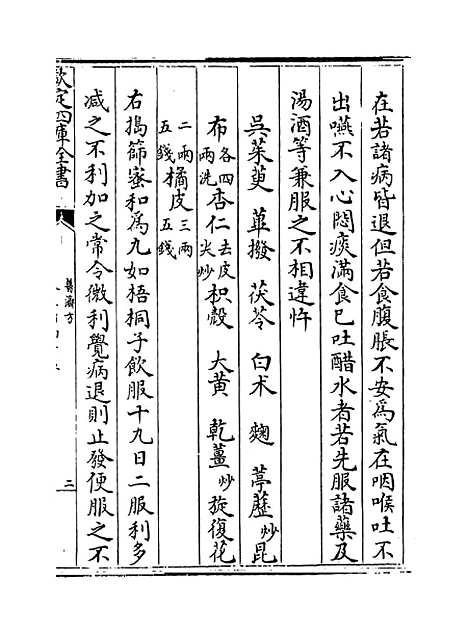 在若諸病皆退但若食腹脹不安為氣在咽喉吐不
出嚥不入心悶痰滿食已吐醋水者若先服諸藥及
湯酒等兼服之不相違忤
吳茱萸 蓽撥 茯苓 白术 麴 葶藶炒 昆
布各四兩洗 杏仁去皮尖炒 枳殼 大黄 乾薑炒 旋復花
二兩五錢 橘皮三兩五錢
右搗篩蜜和為丸如梧桐子飲服十丸日二服利多
减之不利加之常令微利覺病退則止發便服之不
欽定四庫全書
普濟方
三